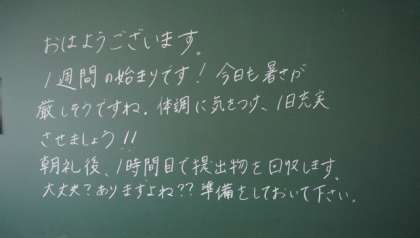 おはようございます。
1週間の始まりです！今日も暑さが
厳しそうですね。体調に気をつけ、1日充実
させましょう!!
朝礼後、1時間目で提出物を回収します。
大丈夫？ありますよね??準備をしておいて下さい。